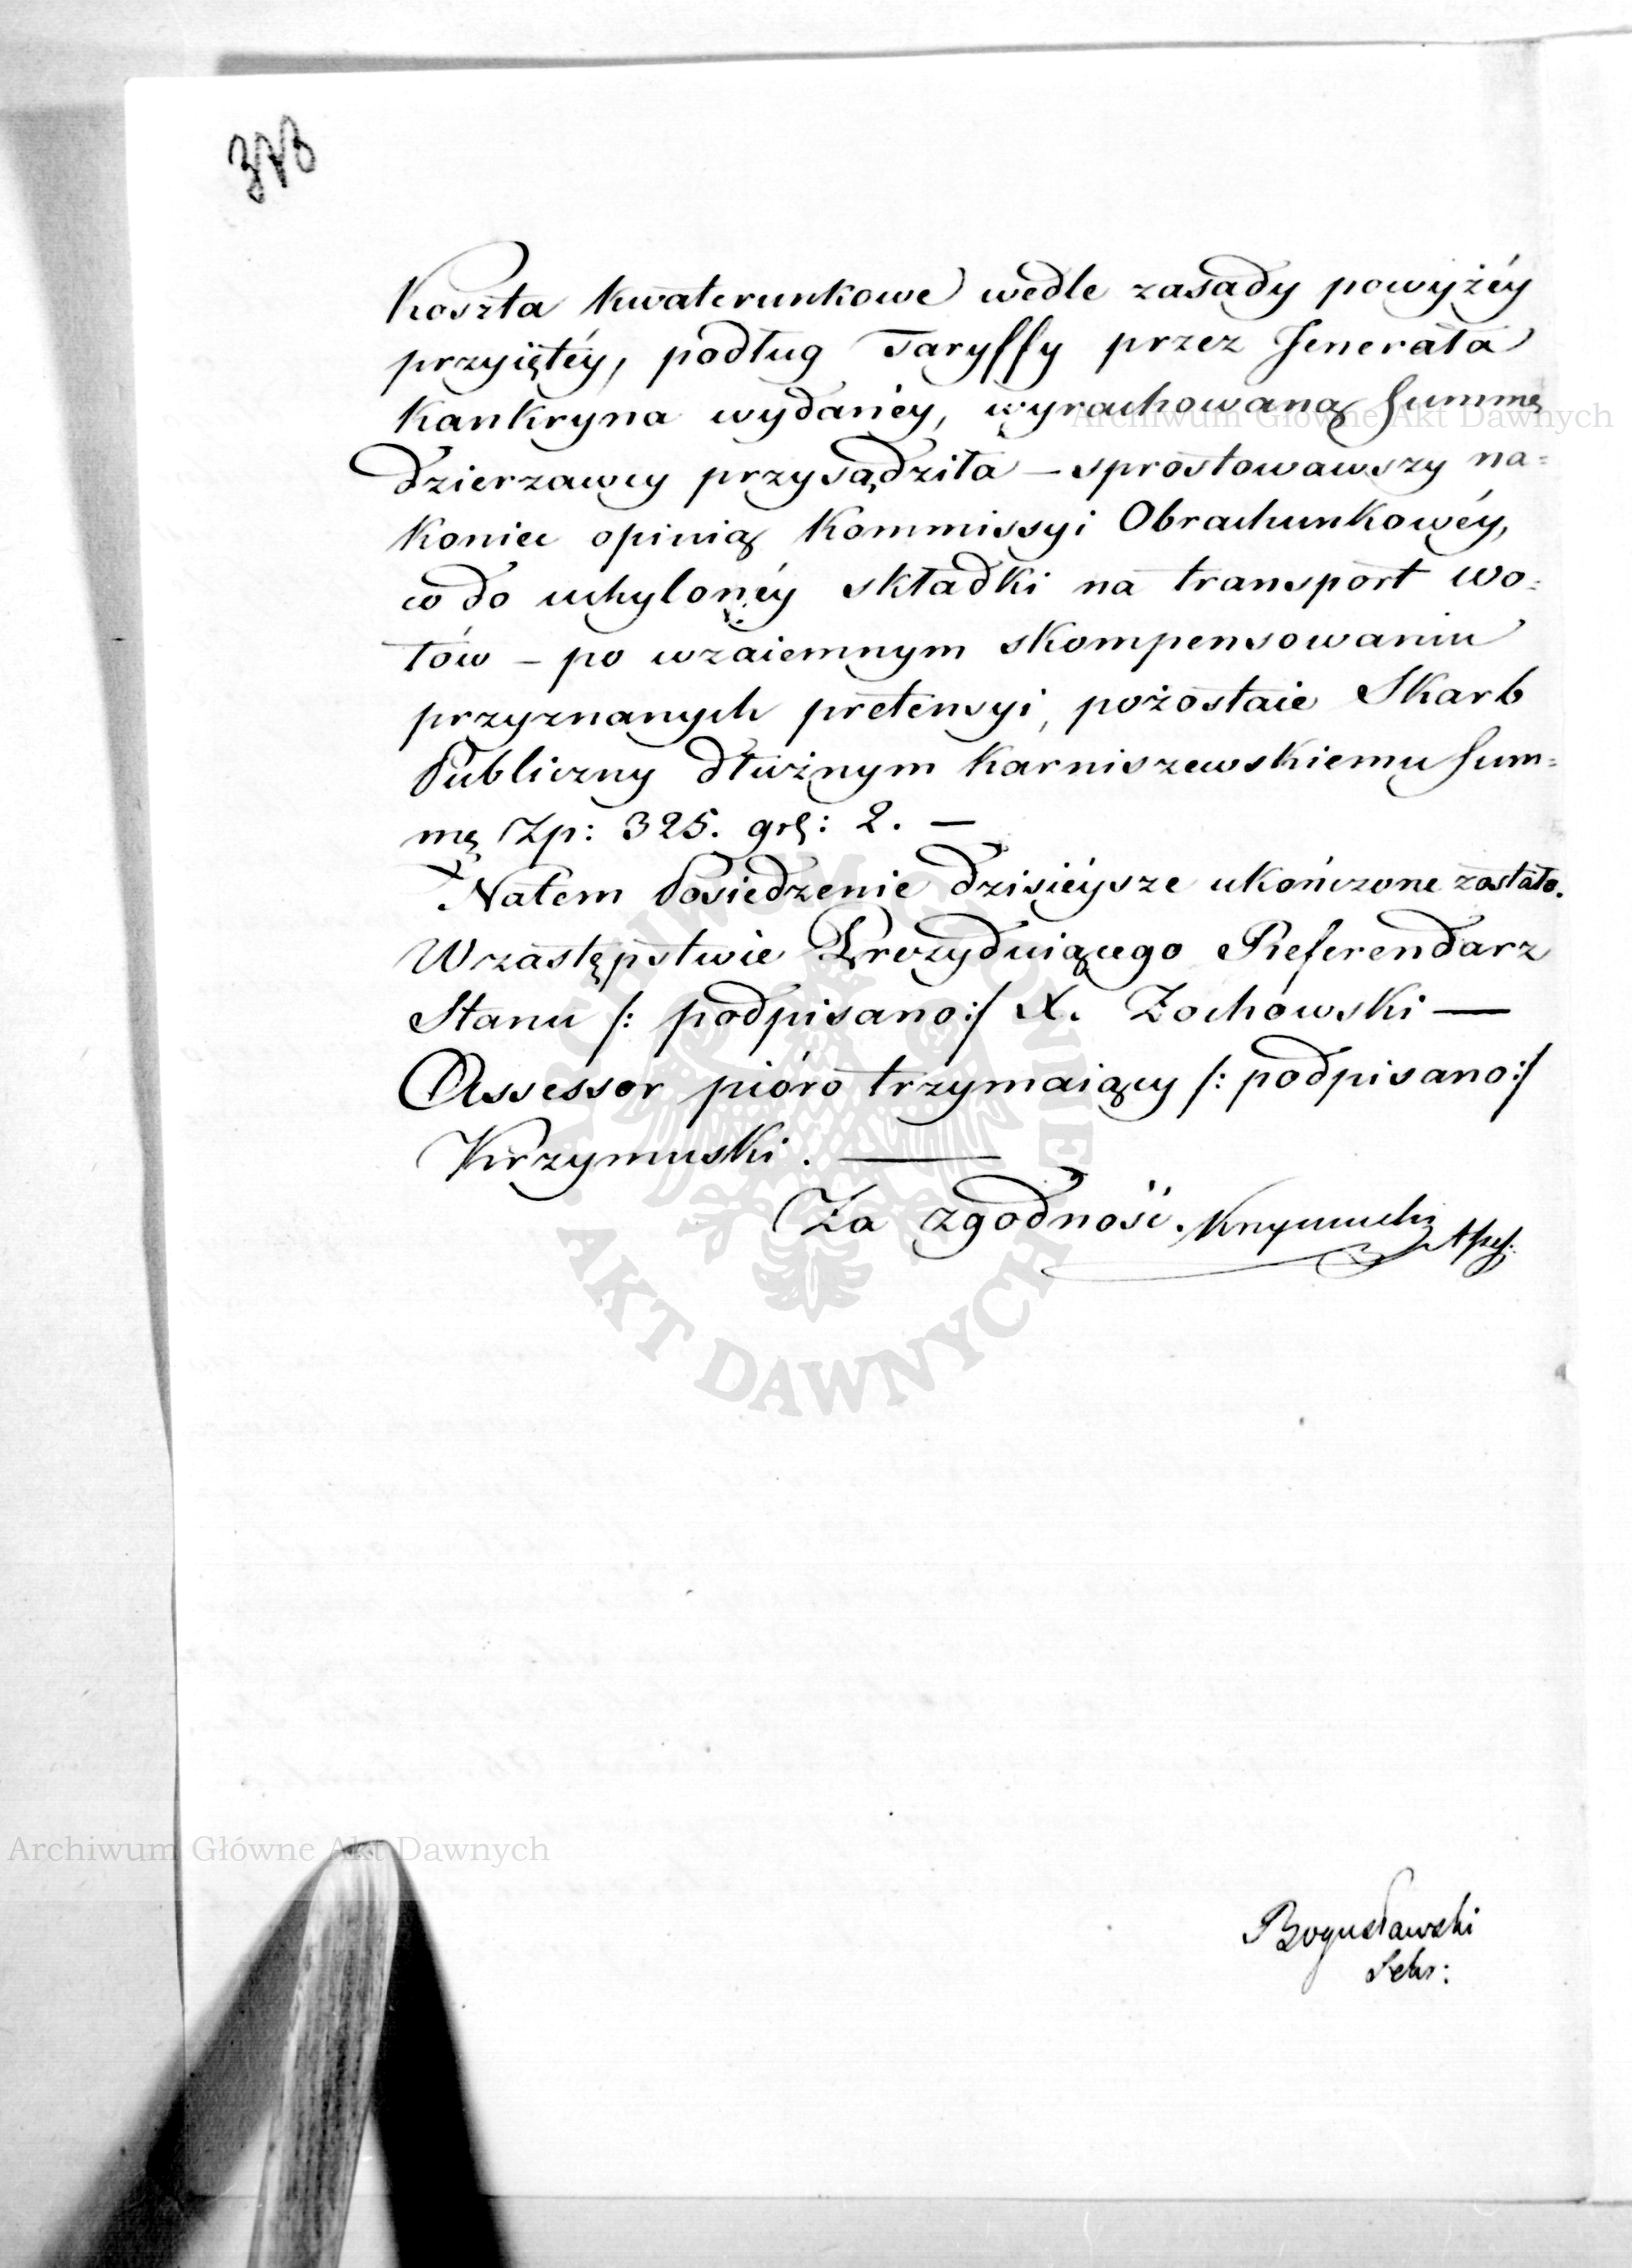 Koszta kwaterunkowe wedle zasady powyżéy
przyiętéy, podług Taryffy przez Jenerała
Kankryna wydanéy, wyrachowaną Summę
dzierzawcy przysądziła – sprostowawszy na=
koniec opinią Kommissyi Obrachunkowéy,
co do uchylonéy składki na transport wo=
łów – po wzaiemnym skompensowaniu
przyznanych pretensyi, pozostaie Skarb
Publiczny dłużnym Karniszewskiemu Sum=
mę Zp: 325. gr: 2. —
Natem Posiedzenie dzisiéysze ukończone zostało.
W zastępstwie Prezyduiącego Referendarz
Stanu /: podpisano :/ X. Żochowski —
Assessor pióro trzymaiący /: podpisano :/
Krzymuski. —
Za zgodność. Krzymuski
Bogusławski
Sekr:
Archiwum Główne Akt Dawnych
Archiwum Główne Akt Dawnych
ARCHIWUM GŁÓWNE AKT DAWNYCH